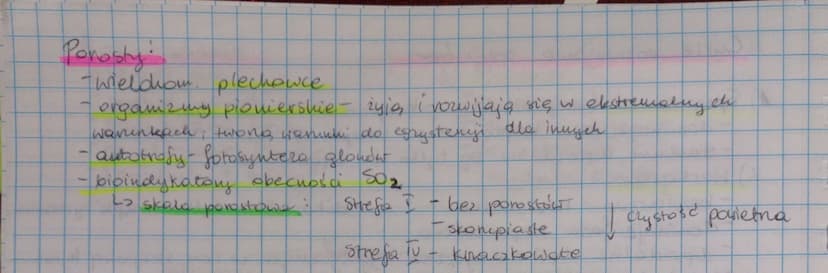 Porosty:
- wielokom. plechowce
- organizmy pionierskie - żyją i rozwijają się w ekstremalnych
warunkach, tworzą warunki do egzystencji dla innych
- autotrofy - fotosynteza glonów
- bioindykatory obecności SO2
↳ skala porostowa: Strefa I - bez porostów
- skorupiaste ↓ czystość powietrza
Strefa IV - krzaczkowate